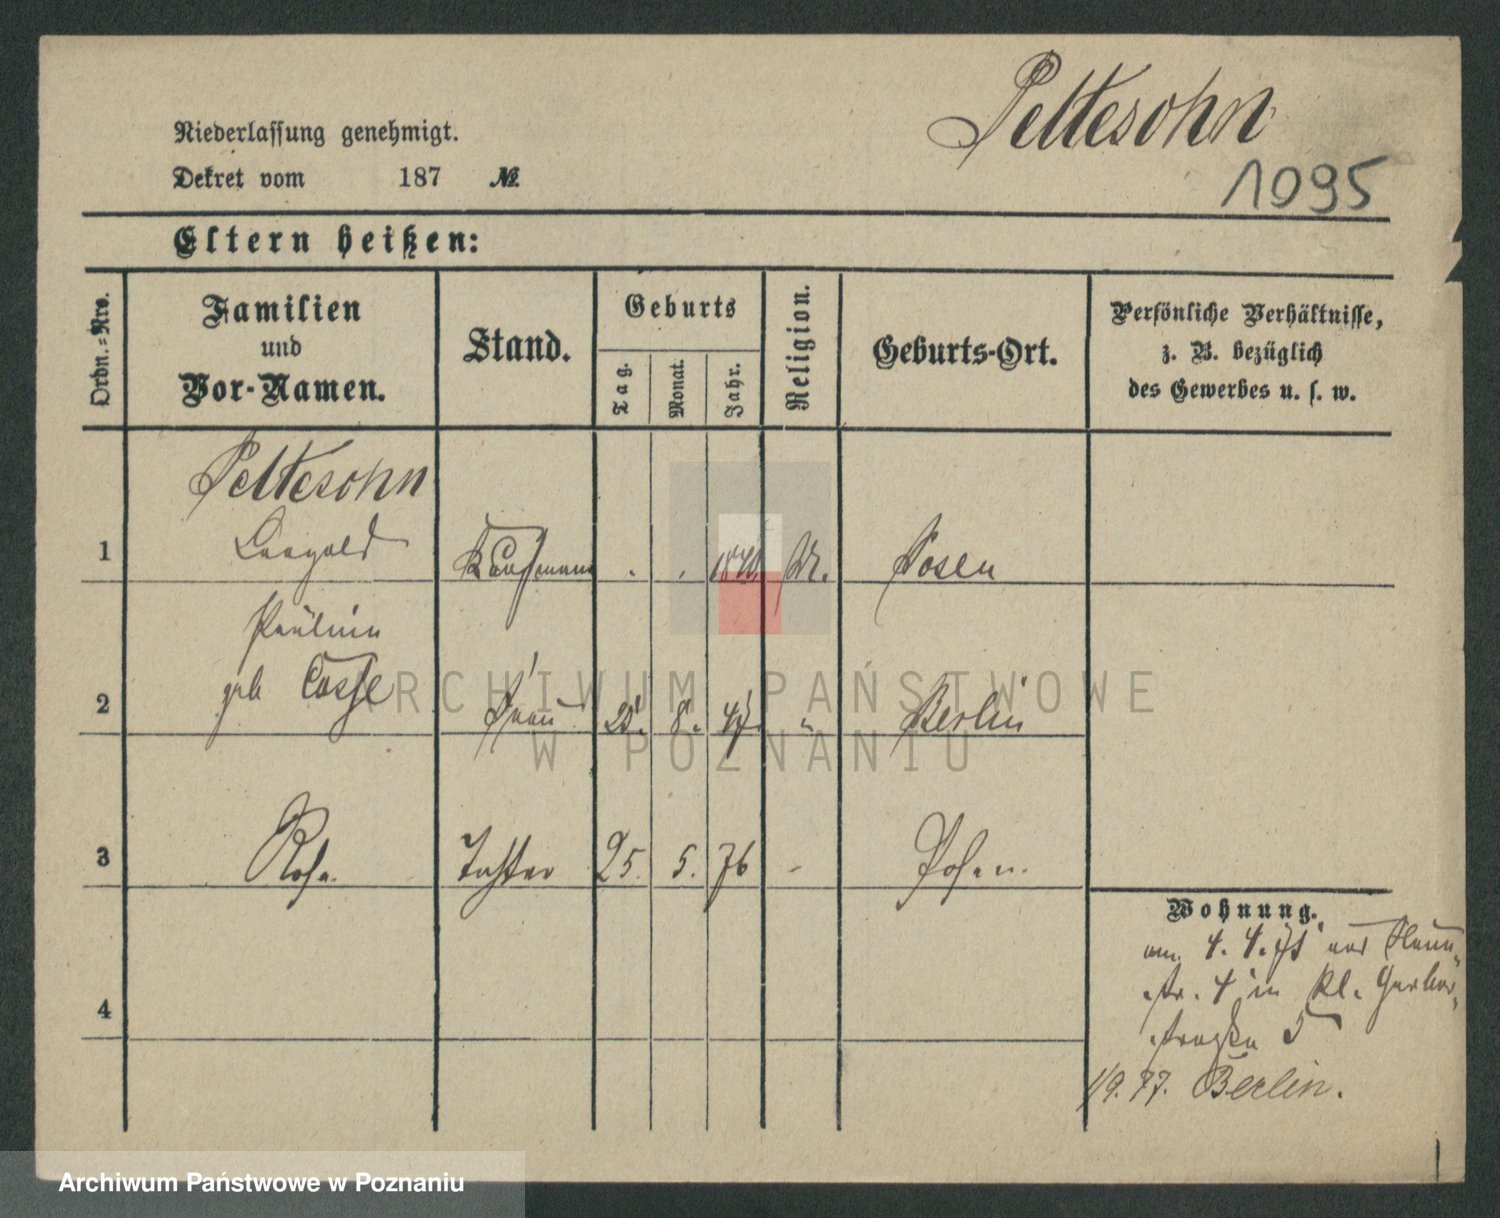 Peltesohn
1095
Niederlassung genehmigt.
Dekret vom 187 №
Eltern heißen:
Ordn.-Nro.
Familien und Vor-Namen.
Stand.
Geburts
Tag.
Monat.
Jahr.
Religion.
Geburts-Ort.
Persönliche Verhältnisse,
z. B. bezüglich
des Gewerbes u. s. w.
Peltesohn
1 Leopold Kaufmann . . M. Posen
Pauline
2 geb Casse Frau 8. 47. " Berlin
3 Rosa Tochter 25. 5. 76 - Posen.
Wohnung.
am 4. 4. aus
str. 4 in kl. Gerber-
strasse 5
1/9. 77. Berlin.
4
ARCHIWUM PAŃSTWOWE
W POZNANIU
Archiwum Państwowe w Poznaniu